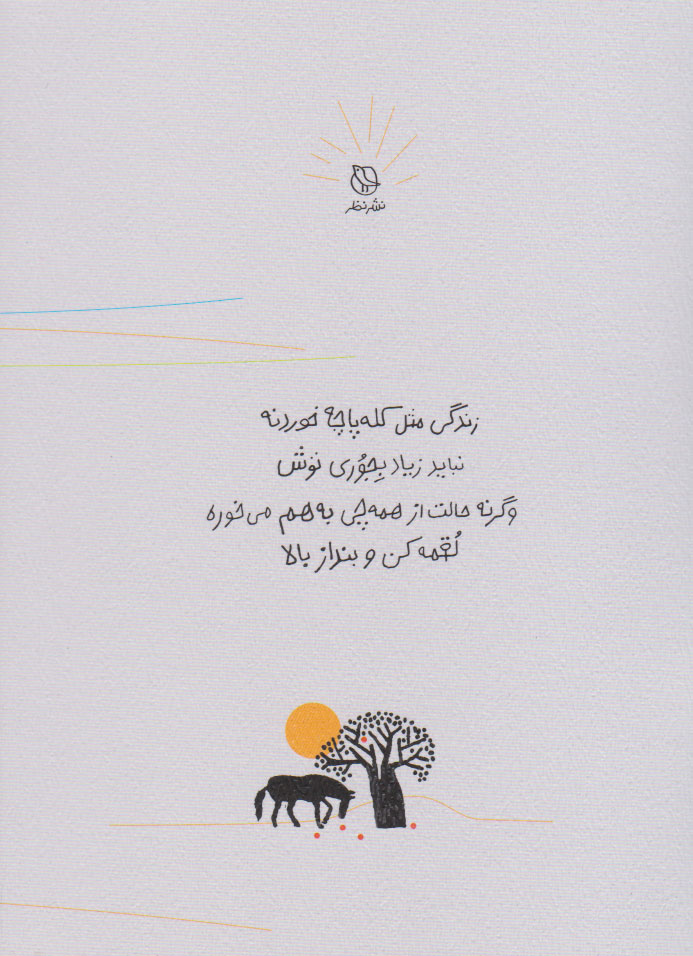 نشر نظر
زندگی مثل کله پاچه خوردنه
نباید زیاد بِجوُری توش
وگرنه حالت از همه چی به هم می خوره
لُقمه کن و بنداز بالا